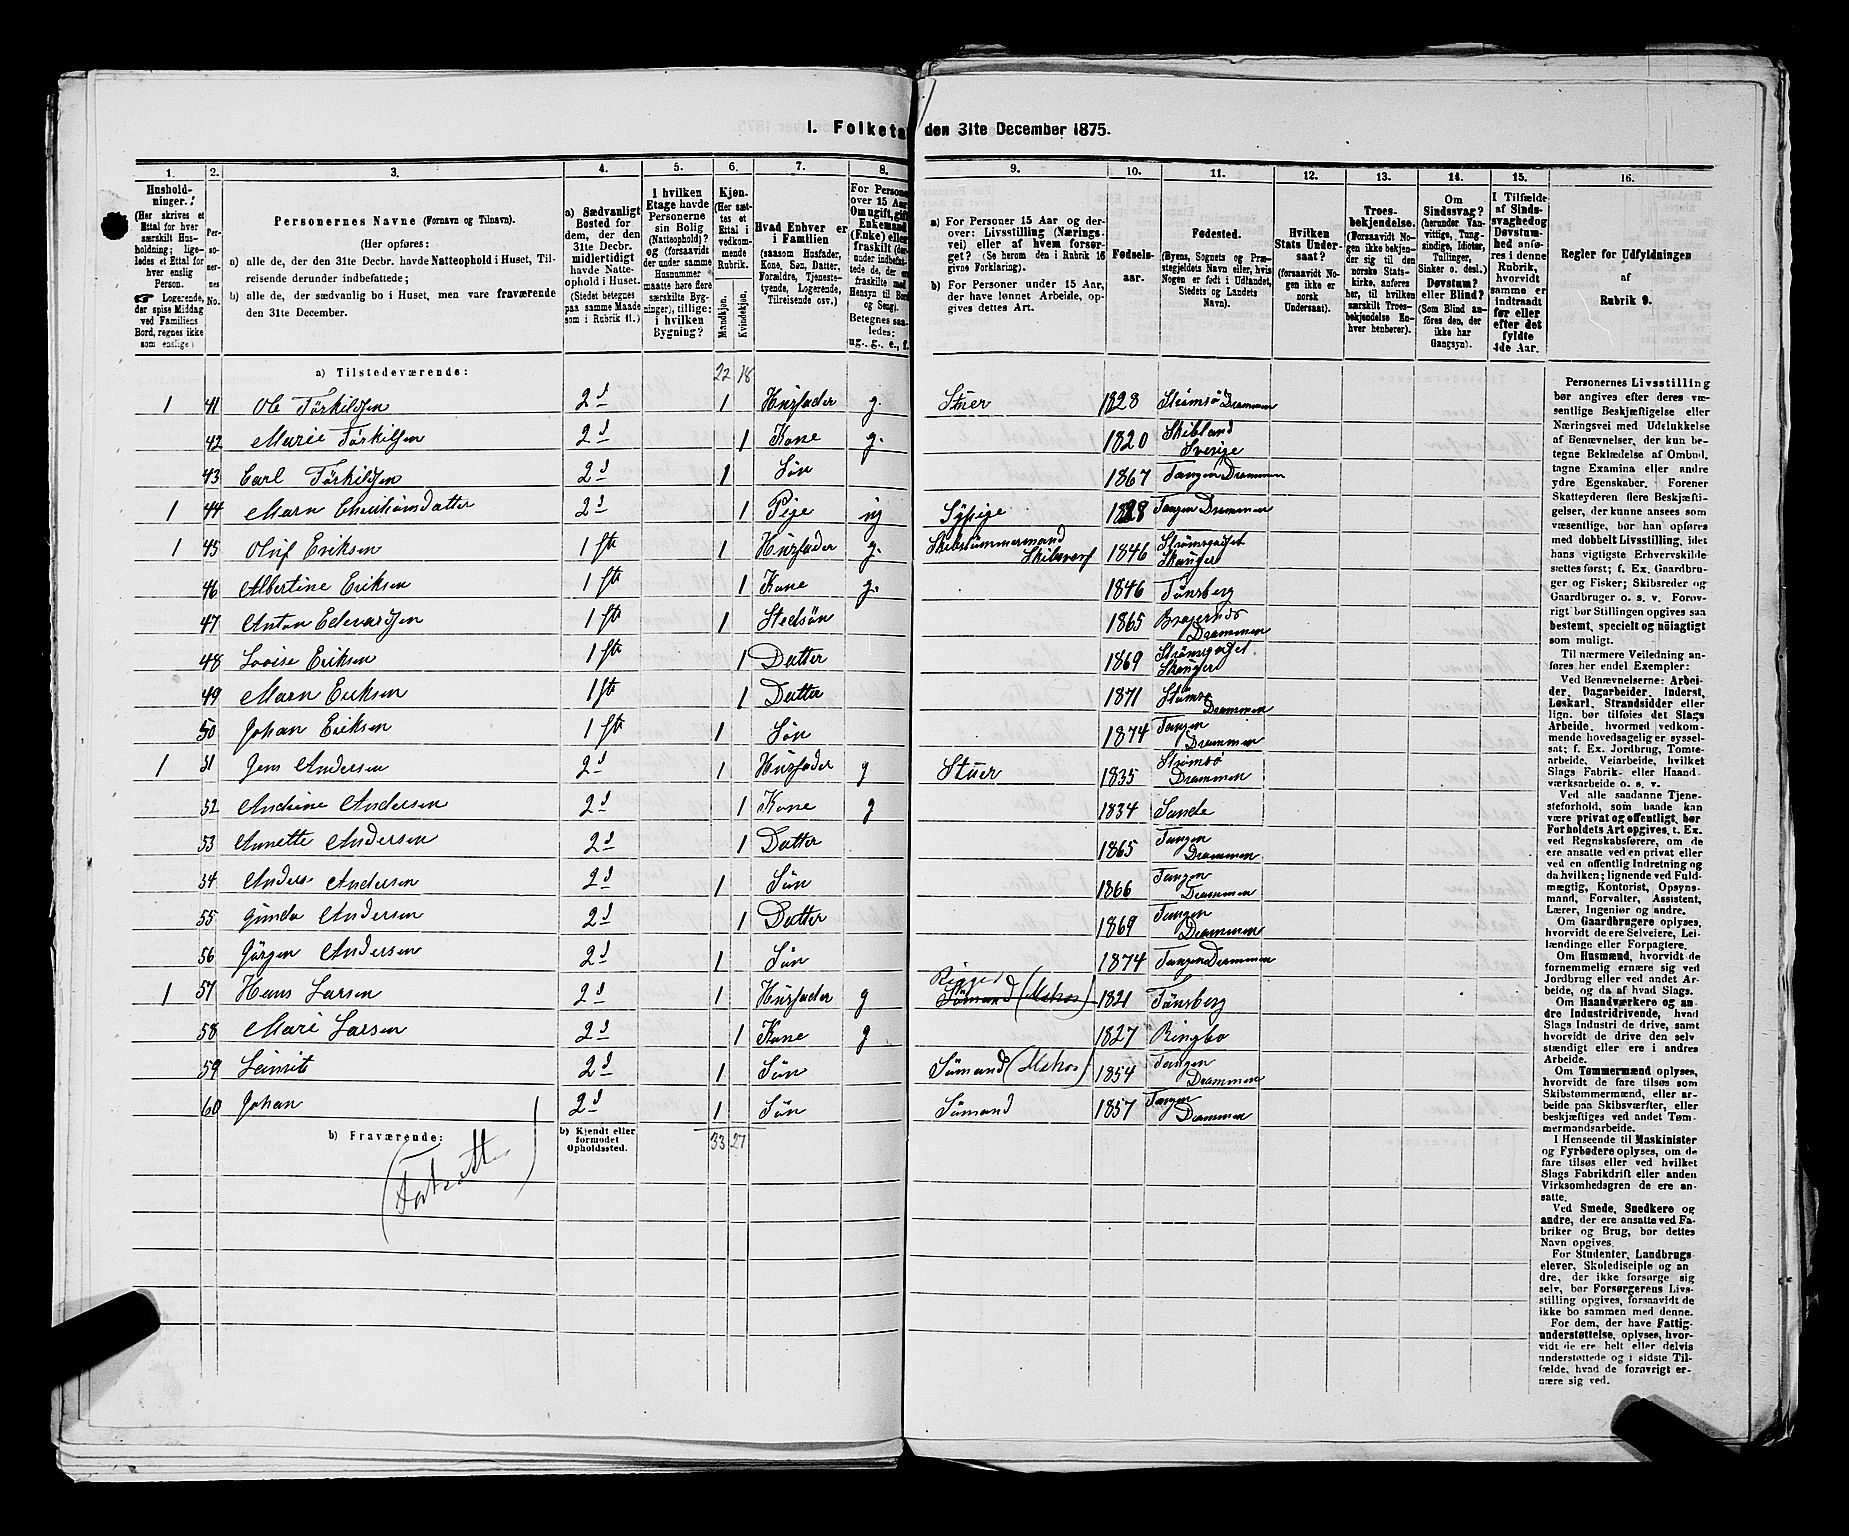 I. Folketal den 31te December 1875.
1. 2. 3. 4. 5. 6. 7. 8. 9. 10. 11. 12. 13. 14. 15. 16.
Husholdninger. (Her skrives et Ettal for hver særskilt Husholdning; ligeledes et Ettal for hver enslig Person. Logerende, der spise Middag ved Familiens Bord, regnes ikke som enslige.)
Personernes No.
Personernes Navne (Fornavn og Tilnavn).
(Her opføres:
a) alle de, der den 31te Decbr. havde Natteophold i Huset, Tilreisende derunder indbefattede;
b) alle de, der sædvanlig bo i Huset, men vare fraværende den 31te December.
a) Sædvanligt Bosted for dem, der den 31te Decbr. midlertidigt havde Natteophold i Huset. (Stedet betegnes paa samme Maade som i Rubrik 11.)
I hvilken Etage havde Personerne sin Bolig (Natteophold)? og (forsaavidt der under samme Husnummer maatte høre flere særskilte Bygninger), tillige: i hvilken Bygning?
Kjøn. (Her sættes et Ettal i vedkommende Rubrik.
Mandkjøn. Kvindekjøn.
Hvad Enhver er i Familien (saasom Husfader, Kone, Søn, Datter, Forældre, Tjenestetyende, Logerende, Tilreisende osv.)
For Personer over 15 Aar: Om ugift, gift, Enkemand (Enke) eller fraskilt
Betegnes saaledes: ug., g., e., f.
a) For Personer 15 Aar og derover: Livsstilling (Næringsvei) eller af hvem forsørget? (Se herom den i Rubrik 16 givne Forklaring).
b) For Personer under 15 Aar, der have lønnet Arbeide, opgives dettes Art.
Fødselsaar.
Fødested. (Byens, Sognets og Præstegjeldets Navn eller, hvis Nogen er født i Udlandet, Stedets og Landets Navn).
Hvilken Stats Undersaat? (forsaavidt Nogen ikke er norsk Undersaat).
Troesbekjendelse. (Forsaavidt Nogen ikke bekjender sig til den norske Statskirke, anføres her, til hvilken særskilt Troesbekjendelse Enhver henhører).
Om Sindssvag? (herunder Vanvittige, Tungsindige, Idioter, Tullinger, Sinker o. desl.) Døvstum? eller Blind? (Som Blind anføres den, der ikke har Gangsyn).
I Tilfælde af Sindssvaghed og Døvstumhed anføres i denne Rubrik, hvorvidt samme er indtraadt før eller efter det fyldte 4de Aar.
Regler for Udfyldningen af Rubrik 9.
a) Tilstedeværende: 22 18
1 41 Ole Törkildsen 2d 1 Husfader g. Stuer 1828 Strømsø Drammen
42 Marie Törkildsen 2d 1 Kone g. 1820 Sverige
43 Carl Törkildsen 2d 1 Søn 1867 Tangen Drammen
1 44 Maren 2d 1 Pige ug Sypige 1828 Tangen Drammen
1 45 Oluf Eriksen 1 ste 1 Husfader g. Skibstømmermand Skibsverf 1846 Strømsgodset Skouger
46 Albertine Eriksen 1 ste 1 Kone g. 1846 Tønsberg
47 Anton Edevardsen 1 ste 1 Stedsøn 1865 Bragernæs Drammen
48 Lovise Eriksen 1 ste 1 Datter 1869 Strømsgodset. Skouger
49 Maren Eriksen 1 ste 1 Datter 1871 Strømsø Drammen
50 Johan Eriksen 1 ste 1 Søn 1874 Tangen Drammen
1 51 Jens Andersen 2d 1 Husfader g Stuer 1835 Strømsø Drammen
52 Andrine Andersen 2d 1 Kone g 1834 Sande
53 Annette Andersen 2d 1 Datter 1865 Tangen Drammen
54 Anders Andersen 2d 1 Søn 1866 Tangen Drammen
55 Gunda Andersen 2d 1 Datter 1869 Tangen Drammen
56 Jørgen Andersen 2d 1 Søn 1874 Tangen Drammen
1 57 Hans Larsen 2d 1 Husfader g Rigger Sømand (Matros) 1821 Tønsberg
58 Mari Larsen 2d 1 Kone g 1827 Ringbo
59 2d 1 Søn Sømand (Matros) 1854 Tangen Drammen
60 Johan 2d 1 Søn Sømand 1857 Tangen Drammen
b) Fraværende: b) Kjendt eller formodet Opholdssted. 33 27
(Fortsatt)
Personernes Livsstilling
bør angives efter deres væsentlige
Beskjæftigelse eller
Næringsvei med Udelukkelse
af Benævnelser, der kun betegne
Beklædelse af Ombud,
tagne Examina eller andre
ydre Egenskaber. Forener
Skatteyderen flere Beskjæftigelser,
der kunne ansees som
væsentlige, bør han opføres
med dobbelt Livsstilling, idet
hans vigtigste Erhvervskilde
sættes først; f. Ex. Gaardbruger
og Fisker; Skibsreder og
Gaardbruger o. s. v. Forøvrigt
bør Stillingen opgives saa
bestemt, specielt og nøiagtigt
som muligt.
Til nærmere Veiledning anføres
her endel Exempler:
Ved Benævnelserne: Arbeider,
Dagarbeider, Inderst,
Løskarl, Strandsidder eller
lign. bør tilføies det Slags
Arbeide, hvormed vedkommende
hovedsagelig er sysselsat;
f. Ex. Jordbrug, Tomtearbeide,
Veiarbeide, hvilket
Slags Fabrik- eller Haandværksarbeide
o. s. v.
Ved alle saadanne Tjenesteforhold,
som baade kan
være privat og offentligt, bør
Forholdets Art opgives, t. Ex.
ved Regnskabsførere, om de
ere ansatte ved en privat eller
ved en offentlig Indretning og
da hvilken; lignende ved Fuldmægtig,
Kontorist, Opsynsmand,
Forvalter, Assistent,
Lærer, Ingeniør og andre.
Om Gaardbrugere oplyses,
hvorvidt de ere Selveiere, Leilændinge
eller Forpagtere.
Om Husmænd, hvorvidt de
fornemmelig ernære sig ved
Jordbrug eller ved andet Arbeide,
og da af hvad Slags.
Om Haandværkere og andre
Industridrivende, hvad
Slags Industri de drive, samt
hvorvidt de drive den selvstændigt
eller ere i andres
Arbeide.
Om Tømmermænd oplyses,
hvorvidt de fare tilsøs som
Skibstømmermænd, eller arbeide
paa Skibsværfter, eller
beskjæftiges ved andet Tømmermandsarbeide.
I Henseende til Maskinister
og Fyrbødere oplyses, om de
fare tilsøs eller ved hvilket
Slags Fabrikdrift eller anden
Virksomhedsgren de ere ansatte.
Ved Smede, Snedkere og
andre, der ere ansatte ved Fabriker
og Brug, bør dettes
Navn opgives.
For Studenter, Landbrugselever,
Skoledisciple og andre,
der ikke forsørge sig
selv, bør Forsørgerens Livsstilling
opgives, forsaavidt de
ikke bo sammen med denne.
For dem, der have Fattigunderstøttelse,
oplyses, hvorvidt
de ere helt eller delvis
understøttede og i sidste Tilfælde,
hvad de forøvrigt ernære
sig ved.